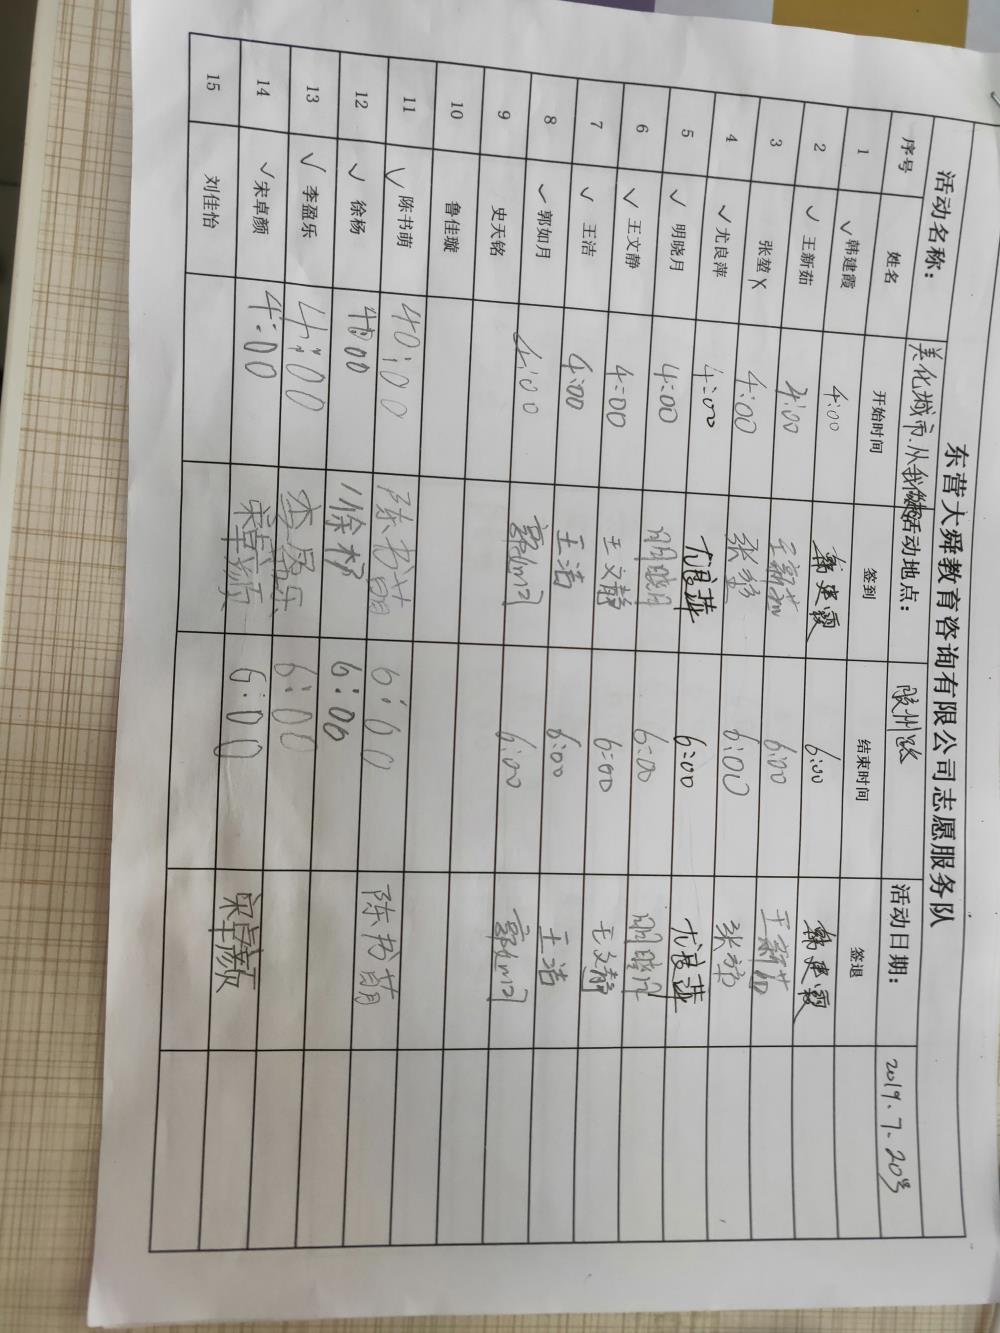 东营大舜教育咨询有限公司志愿服务队
活动名称： 美化城市.从我做起 活动地点： 胶州路 活动日期： 2019.7.20号
序号 姓名 开始时间 签到 结束时间 签退
1 ✓韩建霞 4:00 韩建霞 6:00 韩建霞
2 ✓王新茹 4:00 王新茹 6:00 王新茹
3 张堃 X 4:00 张堃 6:00 张堃
4 ✓尤良萍 4:00 尤良萍 6:00 尤良萍
5 ✓明晓月 4:00 明晓月 6:00 明晓月
6 ✓王文静 4:00 王文静 6:00 王文静
7 ✓王洁 4:00 王洁 6:00 王洁
8 ✓郭如月 4:00 郭如月 6:00 郭如月
9 史天铭
10 鲁佳璇
11 ✓陈书萌 40:00 陈书萌 6:00 陈书萌
12 ✓徐杨 4:00 徐杨 6:00
13 ✓李盈乐 4:00 李盈乐 6:00
14 ✓宋卓颜 4:00 宋卓颜 6:00 宋卓颜
15 刘佳怡